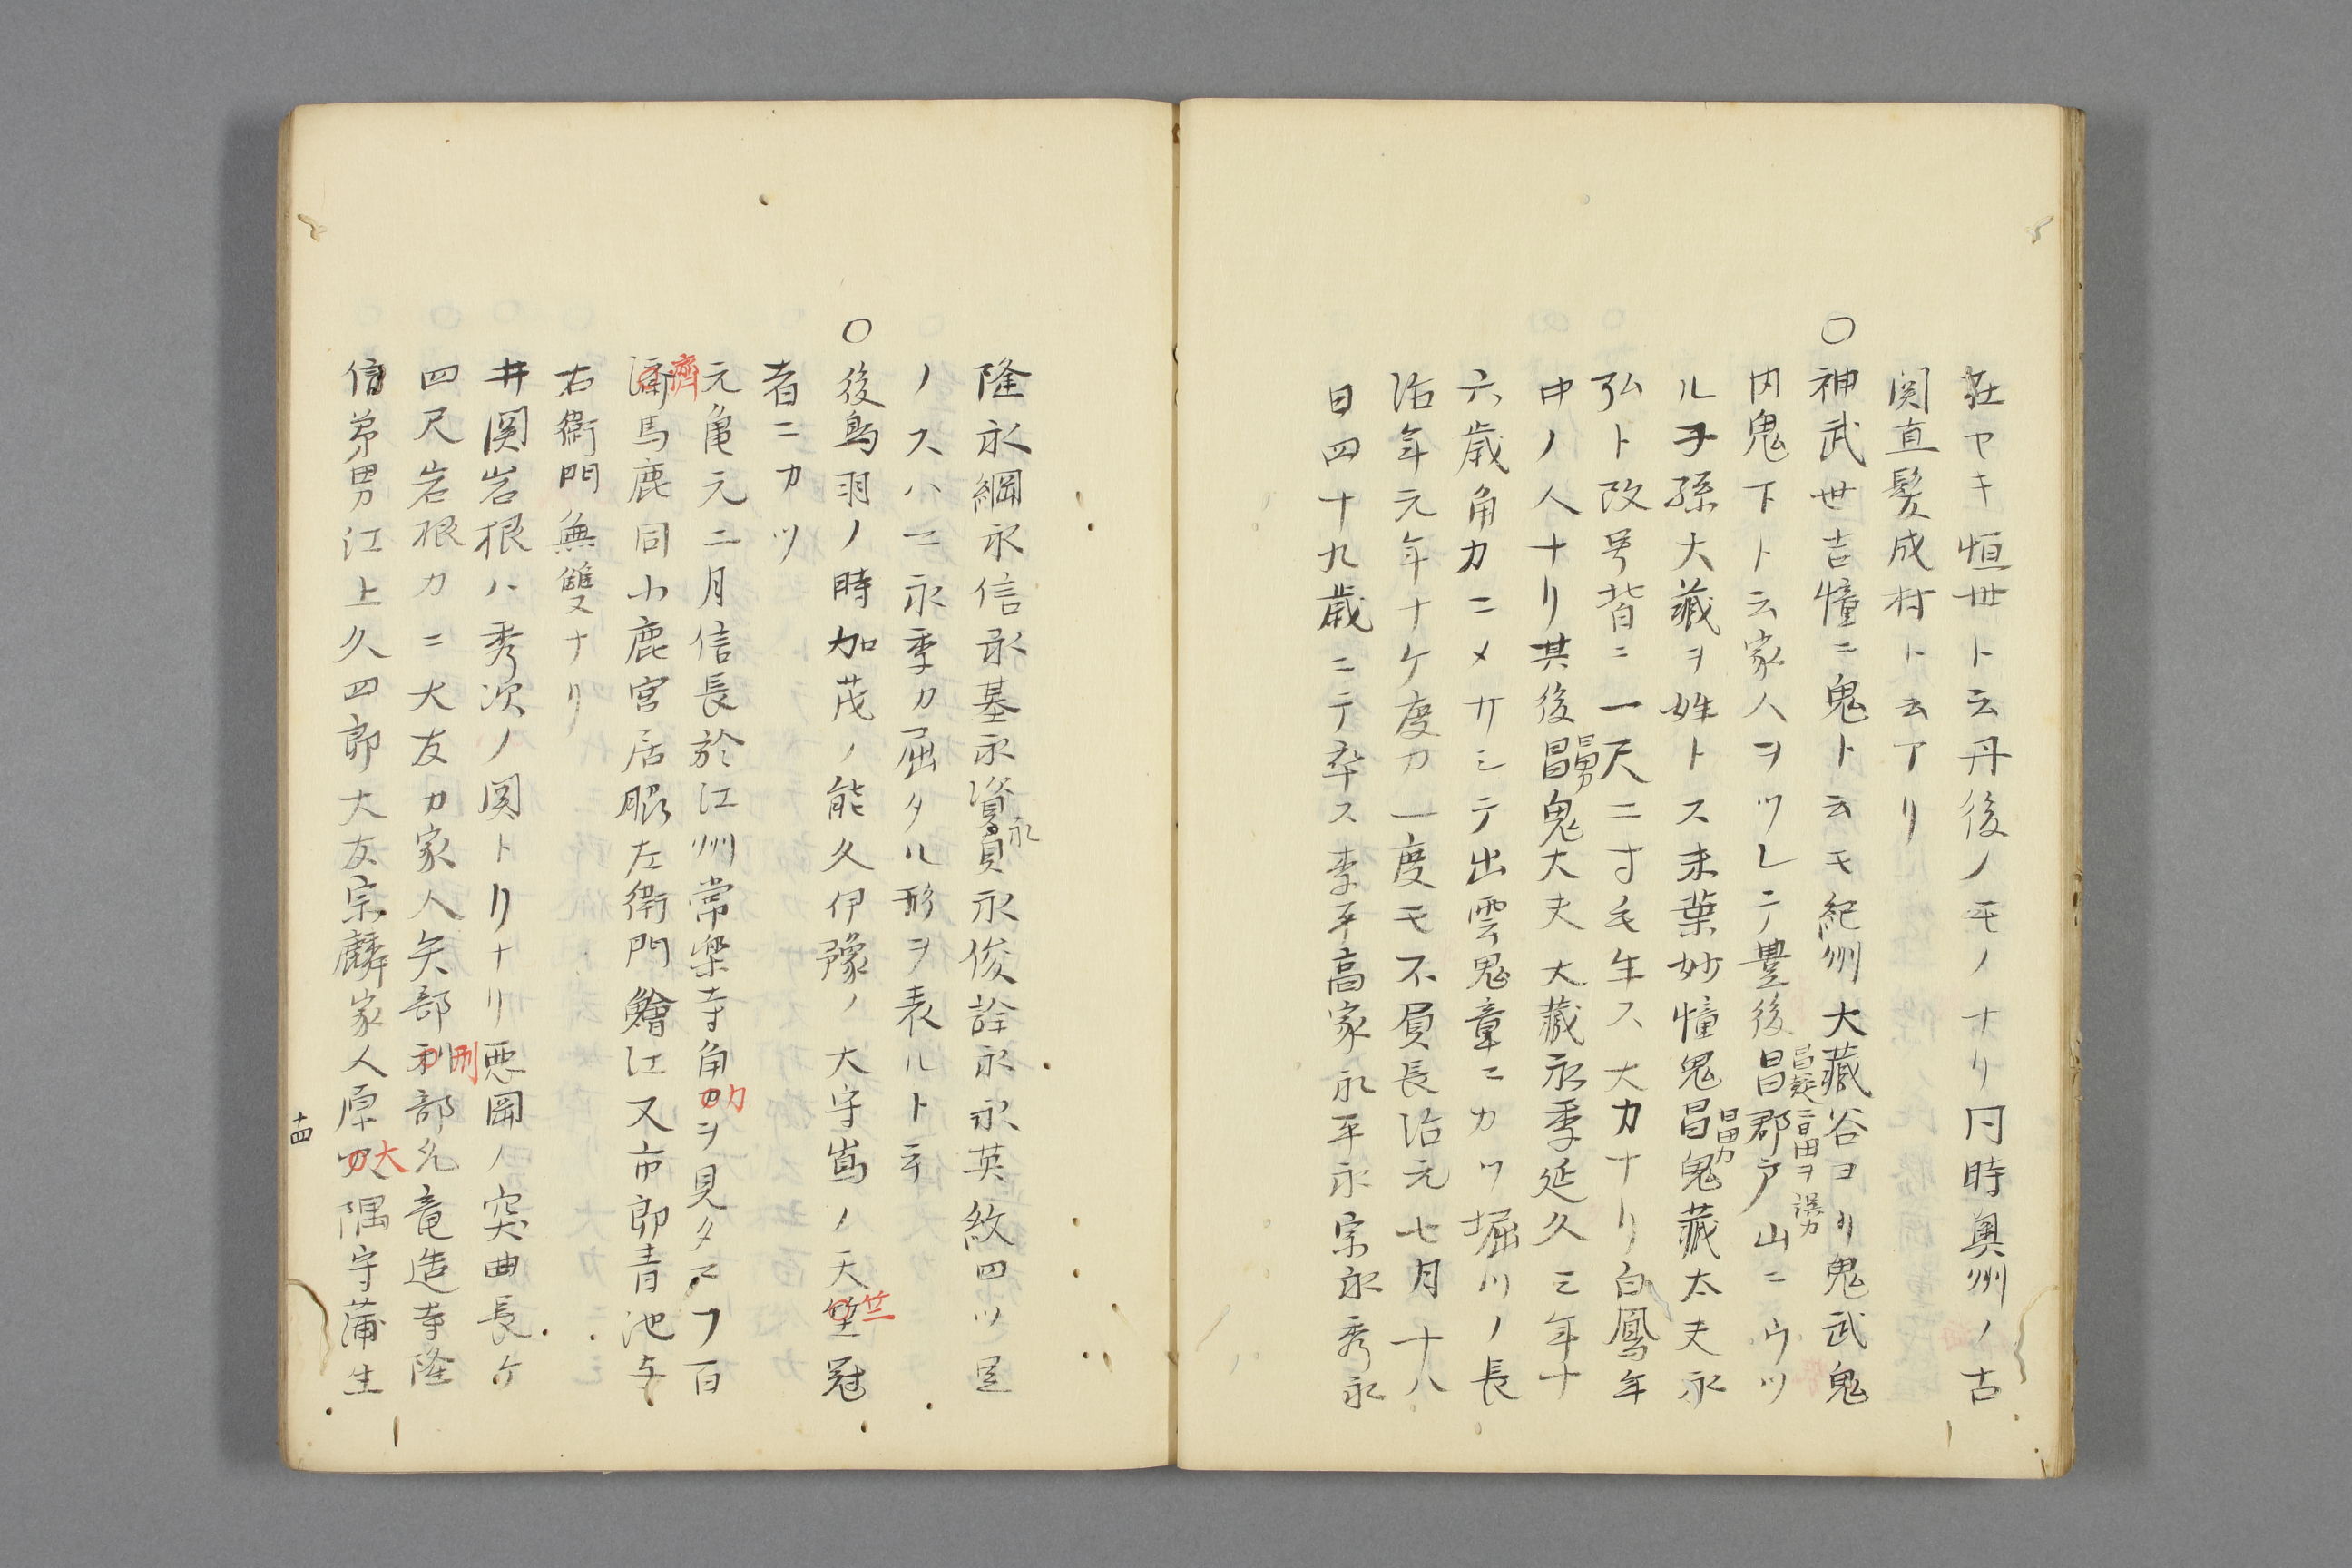 荘ヤキ恒世ト云丹後ノモノナリ同時奥州ノ古
関直髪成村ト云アリ
○神武世吉憧ニ鬼ト云モ紀州大藏谷ヨリ鬼武鬼
内鬼下ト云家人ヲツレテ豊後昌郡戸山ニウツ
ル子孫大藏ヲ姓トス末葉妙憧鬼昌鬼藏太夫永
弘ト改号背ニ一尺二寸毛生ス大力ナリ白鳳年
中ノ人ナリ其後昌鬼大夫大藏永季延久三年十
六歳角力ニメサシテ出雲鬼童ニカツ堀川ノ長
治年元年十ケ度カ一度モ不負長治元七月十八
日四十九歳ニテ卒ス季平高家永平永宗永秀永
隆永綱永信永基永資永貞永俊詮永永英紋四ツ星
ノスハマ永季カ屈タル形ヲ表ルト云
○後鳥羽ノ時加茂ノ能久伊豫ノ大守嶌ノ天竺冠
竺
者ニカツ
元亀元二月信長於江州常楽寺角力ヲ見タマフ百
力
済馬鹿同小鹿宮居眼左衛門鱠江又市郎青池与
濟
右衛門無雙ナリ
井関岩根ハ秀次ノ関トリナリ悪岡ノ突曲長ケ
四尺岩根カニ大友カ家人矢部利部允竜造寺隆
刑
信弟男江上久四郎大友宗麟家人原大隅守蒲生
大
十四